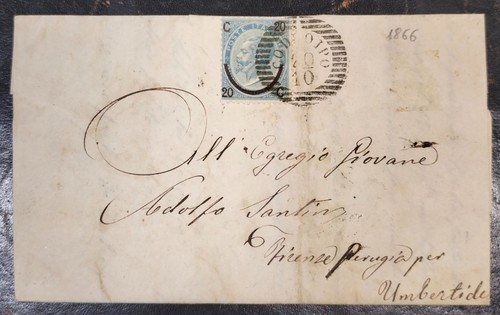 1866
C 20
20 C
CODROIPO
20
10
All' Egregio Giovane
Adolfo Santini
Firenze Perugia per
Umbertide